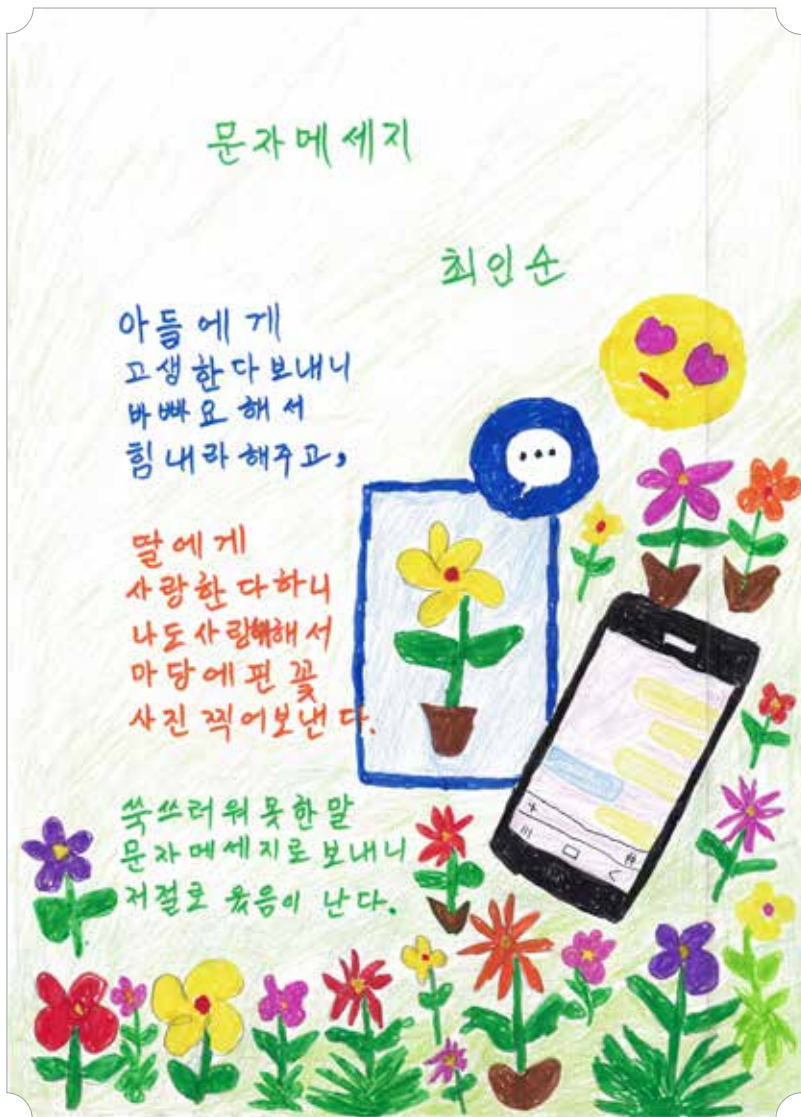 문자메세지
최인순
아들에게
고생한다보내니
바빠요해서
힘내라해주고,
딸에게
사랑한다하니
나도사랑해해서
마당에핀꽃
사진찍어보낸다.
쑥쓰러워못한말
문자메세지로보내니
저절로웄음이 난다.